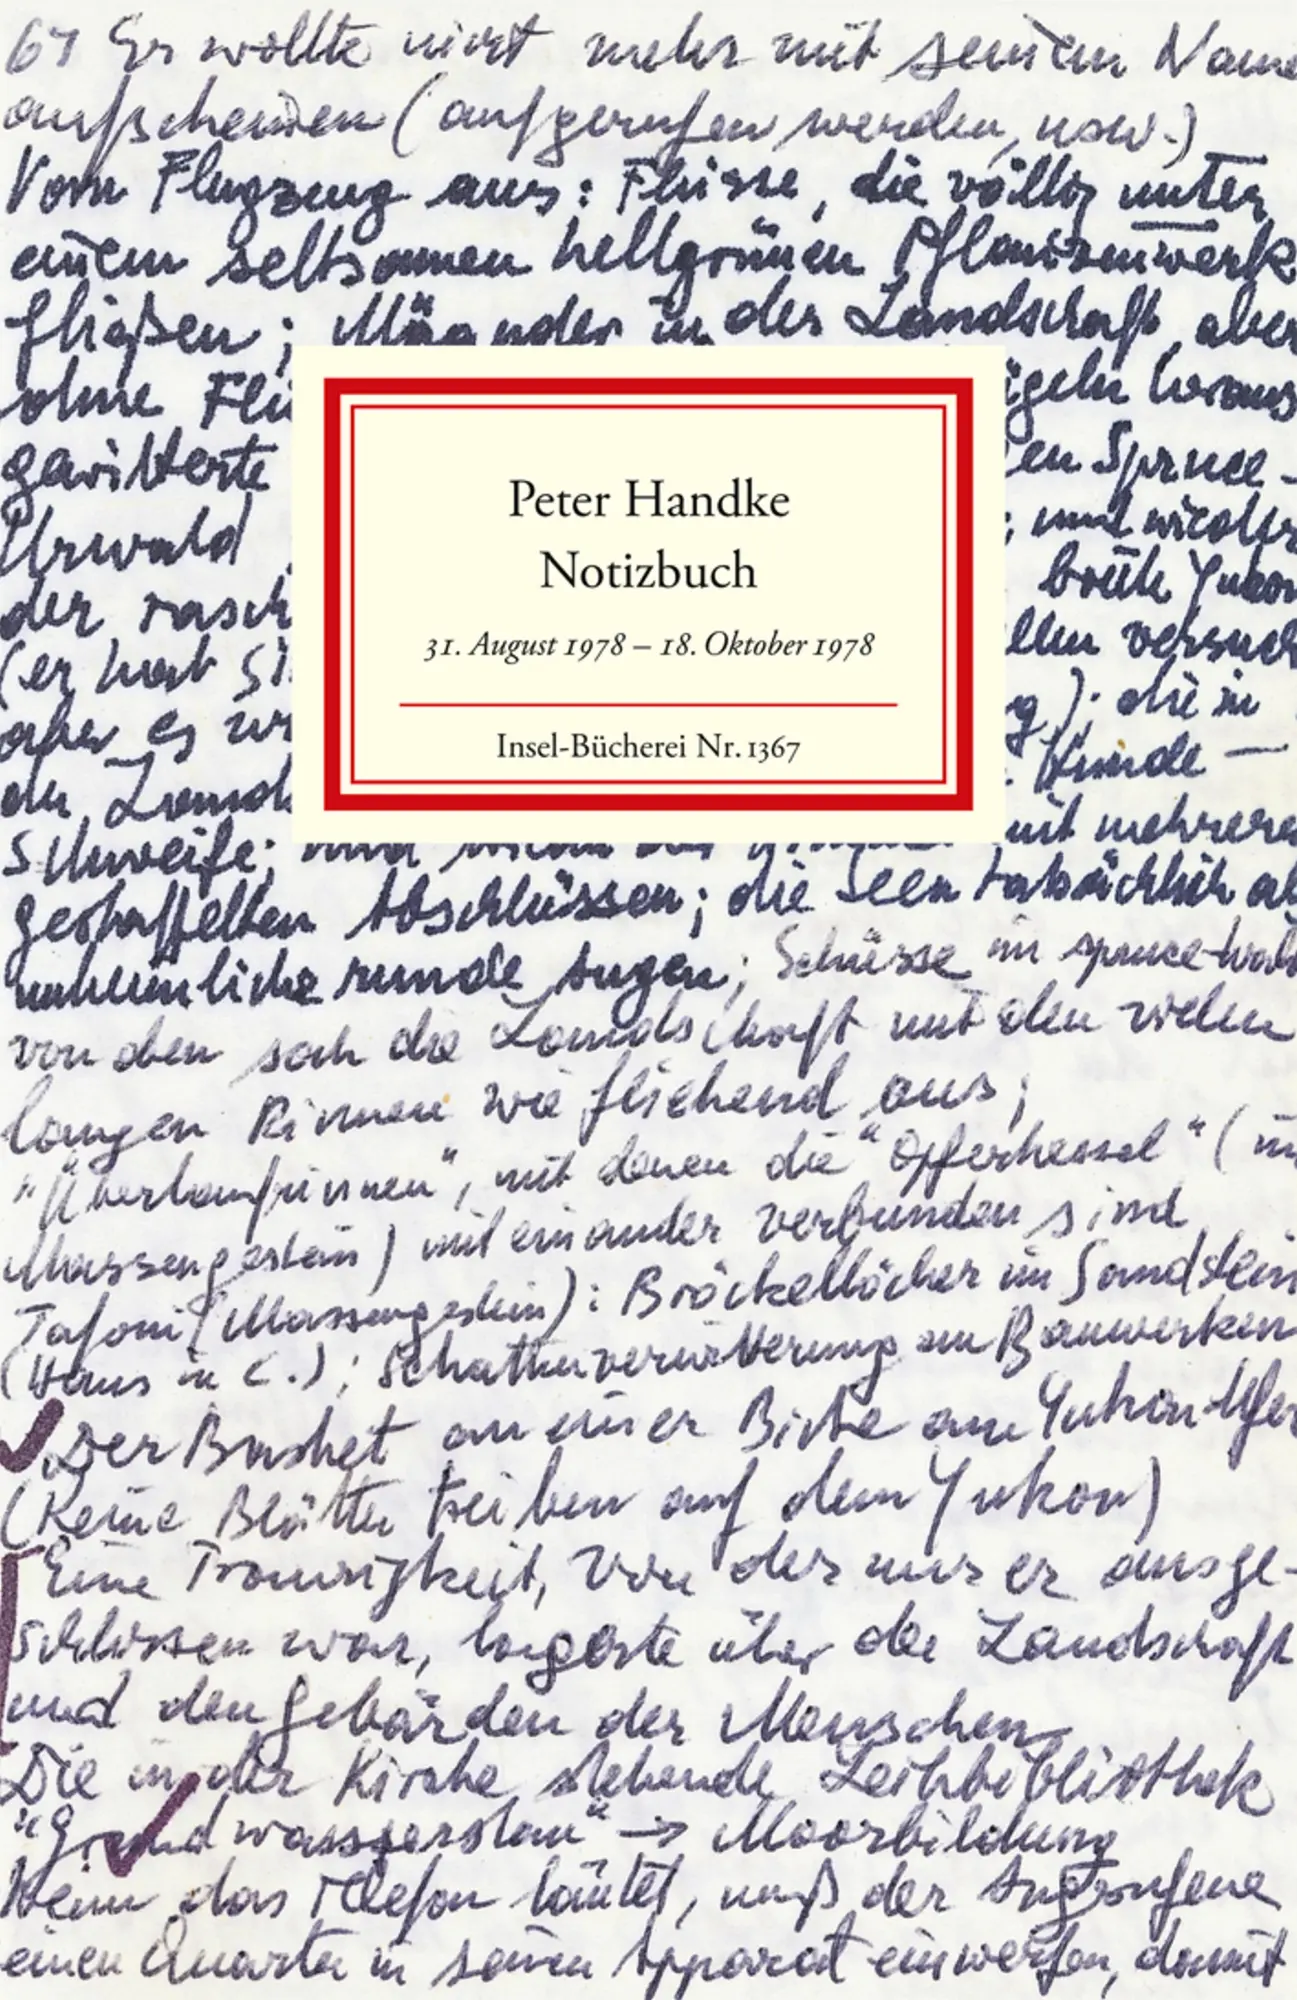 67 Er wollte nicht mehr mit seinem Name
aufscheinen (aufgerufen werden, usw.)
Vom Flugzeug aus: Flüsse, die völlig unter
einem seltsamen hellgrünen Pflanzenwerk
fließen; Mäander in der Landschaft, aber
ohne Flü
geln heraus
gewitterte
en Spruce-
Urwald
; und wieder
der rasch
breite Yukon
(er hat si
llen versuch
aber es wi
g); die in
der Landsch
Hunde —
Schweife;
mit mehrere
Peter Handke
Notizbuch
31. August 1978 – 18. Oktober 1978
Insel-Bücherei Nr. 1367
gestaffelten Abschlüssen; die Seen tatsächlich al
unheimliche runde Augen; Schüsse im spruce-Wald
von oben sah die Landschaft mit den vielen
langen Rinnen wie fliehend aus;
"Überlaufrinnen", mit denen die "Opferkessel" (im
Massengestein) miteinander verbunden sind
Tafoni (Massengestein): Bröckellöcher im Sandstein
(Haus in C.); Schattenverwitterung an Bauwerken
Der Basket an einer Birke am Yukon-Ufer
(Keine Blätter treiben auf dem Yukon)
Eine Traurigkeit, von der nur er ausge-
schlossen war, lagerte über der Landschaft
und den Gebärden der Menschen
Die in der Kirche stehende Leihbibliothek
"Grundwasserstau" → Moorbildung
Wenn das Telefon läutet, muß der Angerufene
einen Quarter in seinen Apparat einwerfen, damit